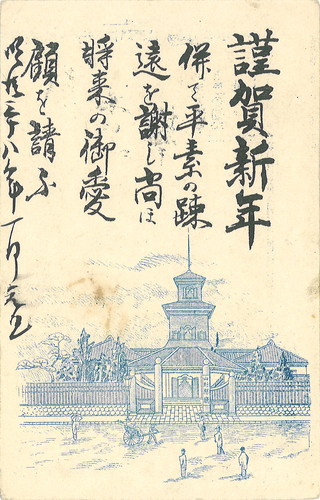 謹賀新年
併て平素の疎
遠を謝し尚ほ
将来の御愛
顧を請ふ
明治三十八年一月元旦